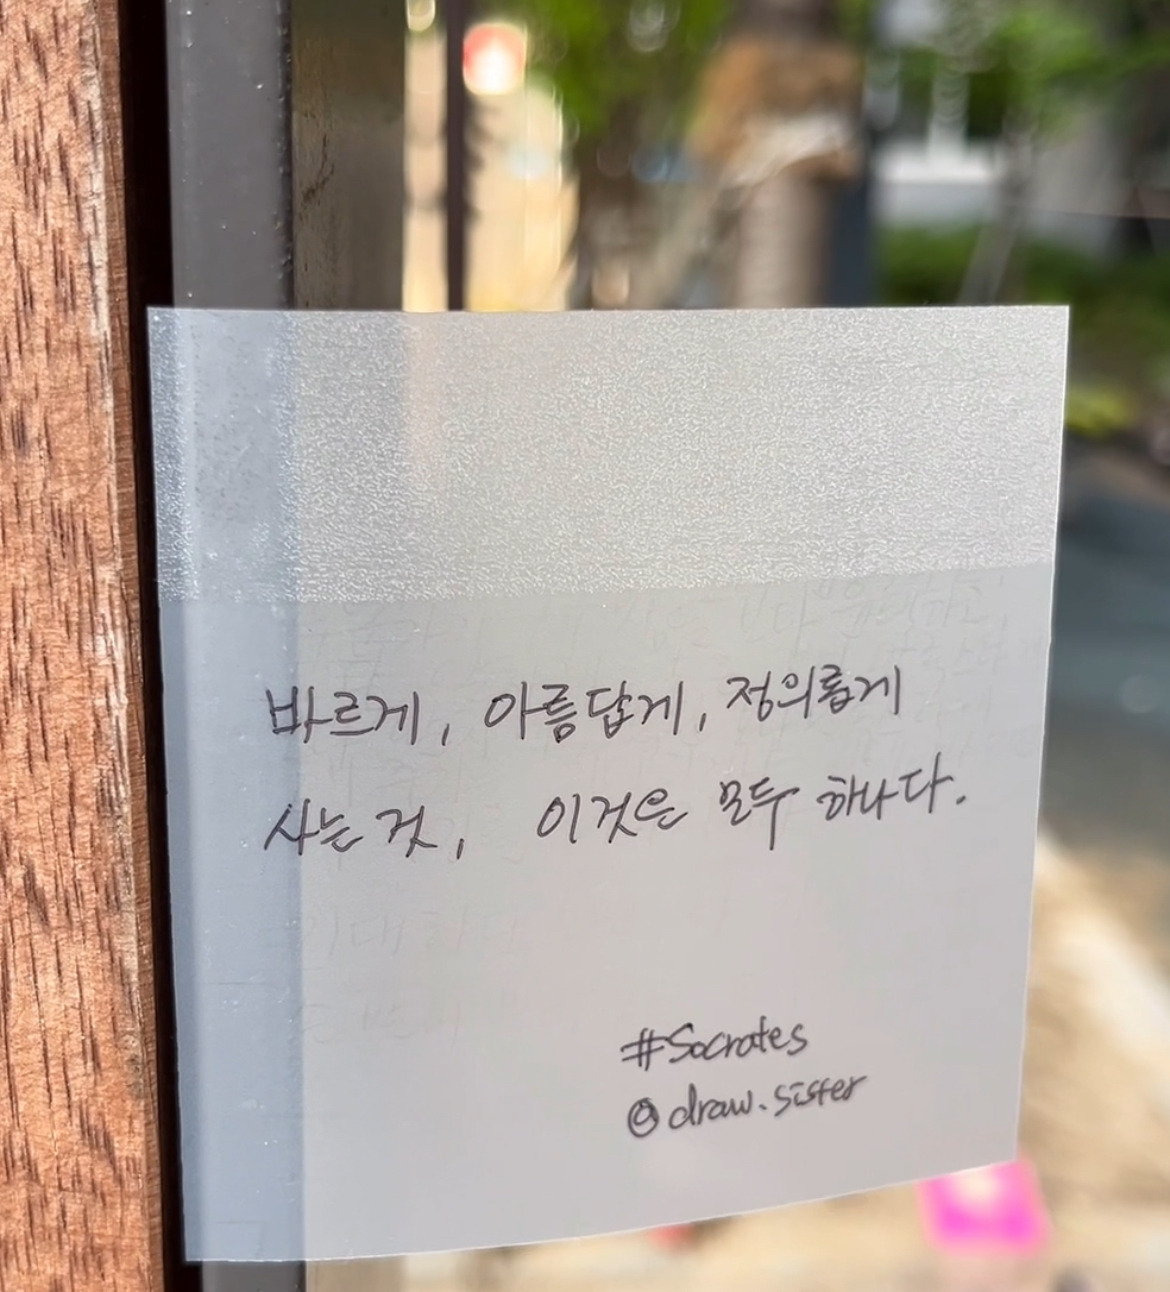 바르게, 아름답게, 정의롭게
사는 것, 이것은 모두 하나다.
#Socrates
@draw.sister